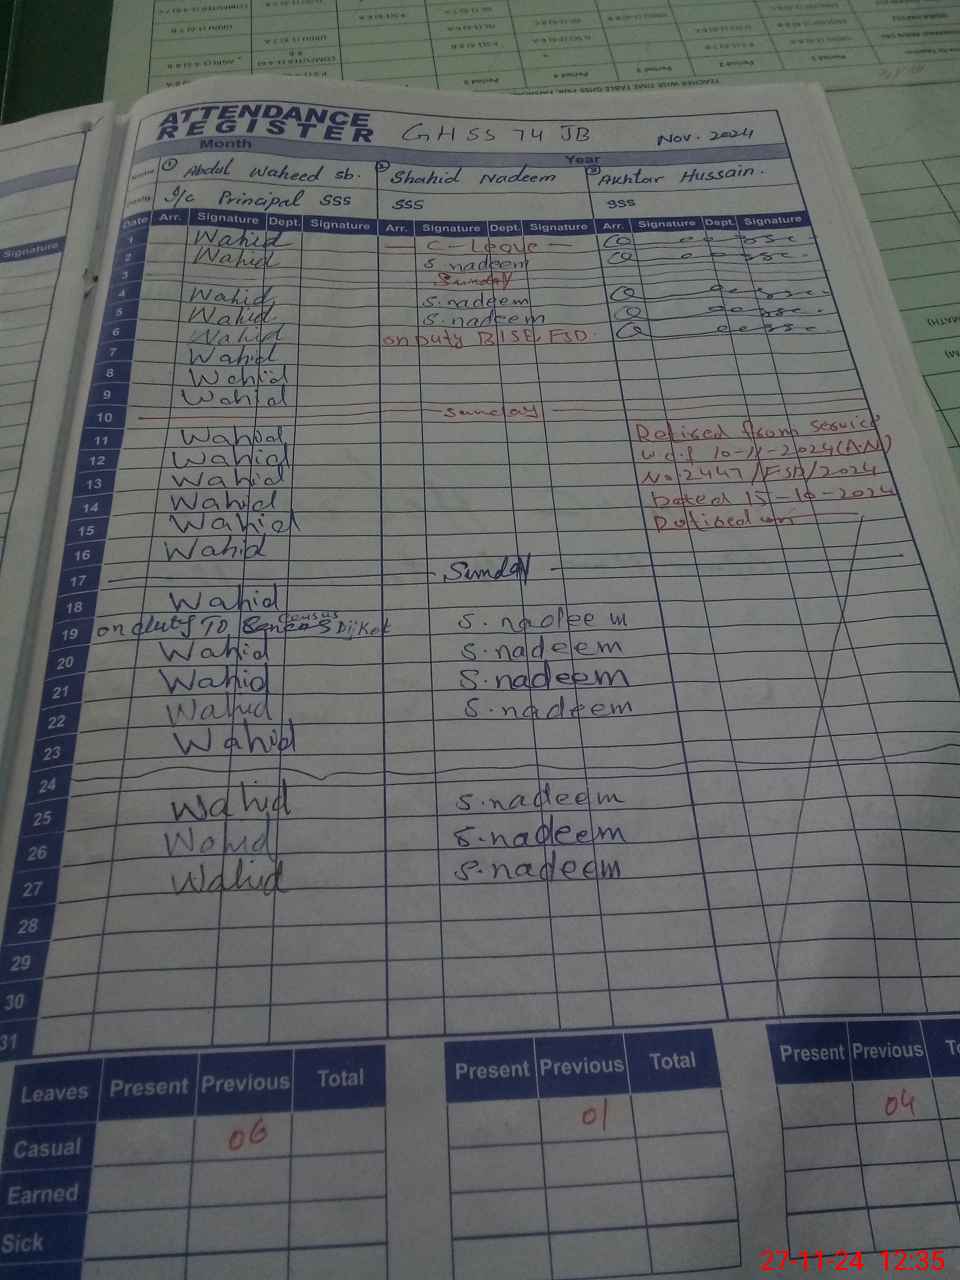 ATTENDANCE
REGISTER GHSS 74 JB Nov. 2024
Month Year
① Abdul Waheed sb. ② Shahid Nadeem ③ Akhtar Hussain.
I/c Principal SSS SSS SSS
Date Arr. Signature Dept. Signature Arr. Signature Dept. Signature Arr. Signature Dept. Signature
1 Wahid C-Leave
2 Wahid S.nadeem
3 Sunday
4 Wahid S.nadeem
5 Wahid S.nadeem
6 Wahid on Duty BISE FSD.
7 Wahid
8 Wahid
9 Wahid
10 Sunday
11 Wahid Retired from service
12 Wahid w.e.f 10-11-2024(A.N)
13 Wahid No.2447/FSD/2024
14 Wahid Dated 15-10-2024
15 Wahid
16 Wahid
17 Sunday
18 Wahid
19 on duty TO Census Dijkot S. nadeem
20 Wahid S.nadeem
21 Wahid S.nadeem
22 Wahid S.nadeem
23 Wahid
24
25 Wahid S.nadeem
26 Wahid S.nadeem
27 Wahid S.nadeem
28
29
30
31
Leaves Present Previous Total Present Previous Total Present Previous
Casual 06 01 04
Earned
Sick
Signature
27-11-24 12:35